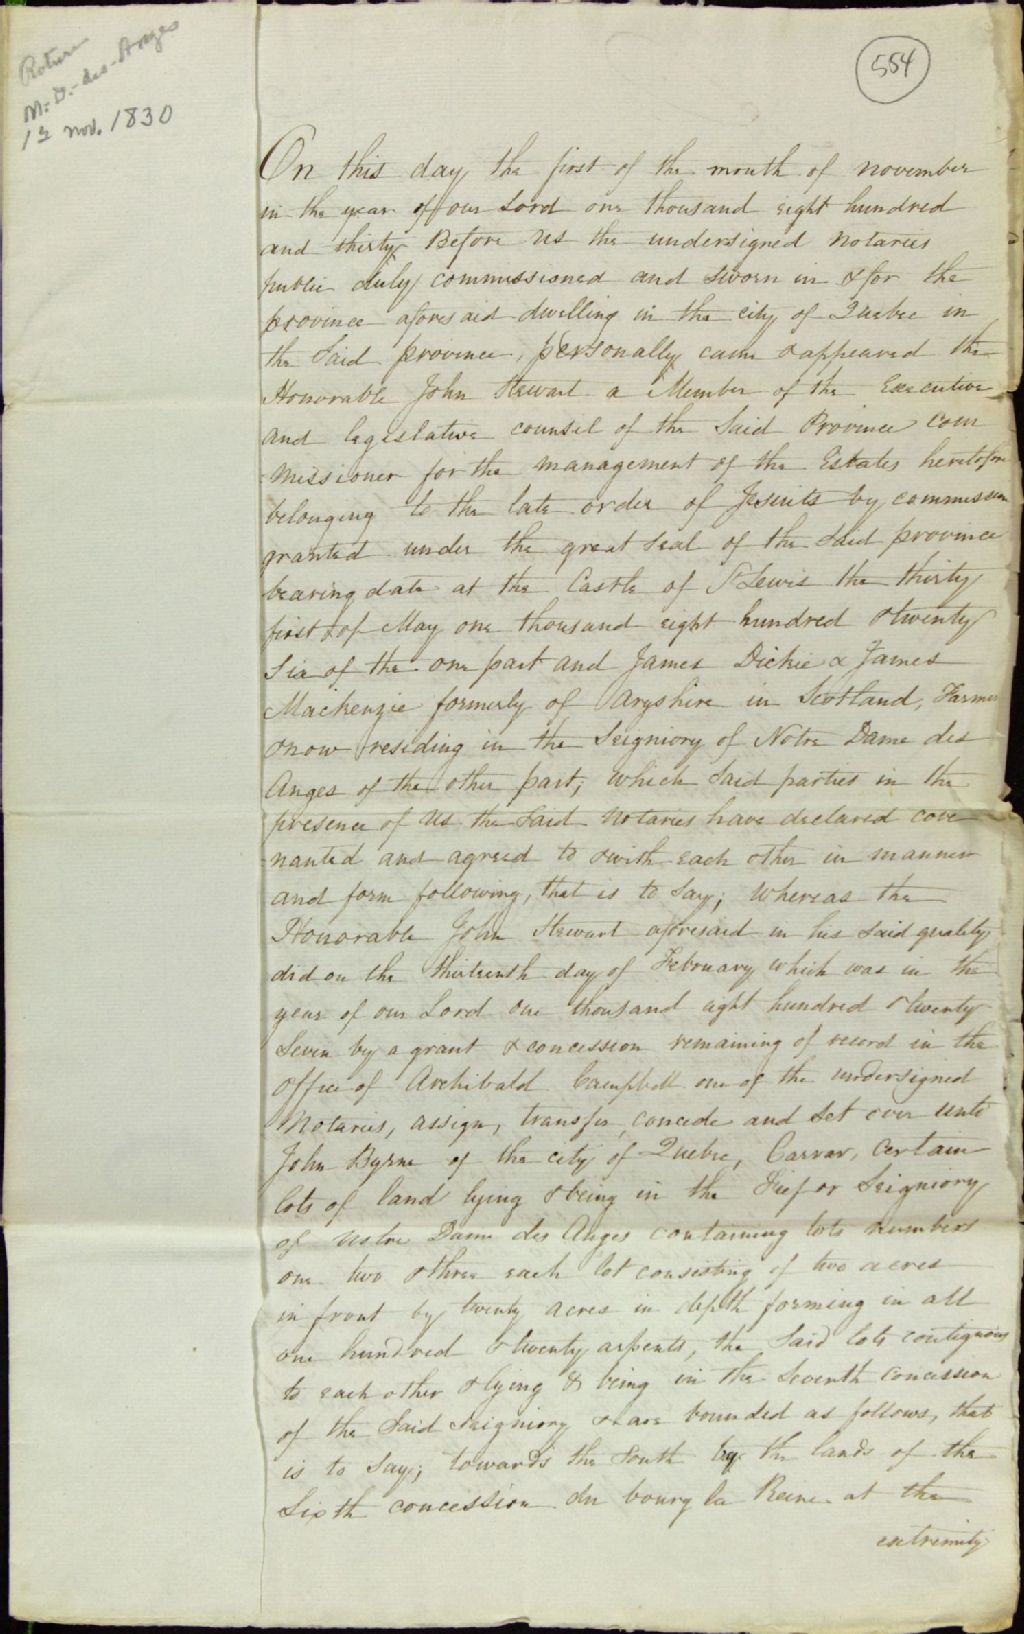 Roture
N.-D.-des-Anges
12 nov. 1830
554
On this day the first of the month of november
in the year of our Lord one thousand eight hundred
and thirty Before us the undersigned Notaries
public duly commissioned and sworn in & for the
province aforesaid dwelling in the city of Quebec in
the Said province, personally came & appeared the
Honorable John Stewart a Member of the Executive
and legislative counsel of the Said Province Com
missioner for the management of the Estates heretofore
belonging to the late order of Jesuits by commission
granted under the great Seal of the Said province
bearing date at the Castle of St Lewis the thirty
first of May one thousand eight hundred & twenty
Six of the one part and James Dickie & James
Mackenzie formerly of Aryshire in Scotland, Farmers
& now residing in the Seigniory of Notre Dame des
Anges of the other part, which Said parties in the
presence of us the Said Notaries have declared cove
nanted and agreed to & with each other in manner
and form following, that is to Say; Whereas the
Honorable John Stewart aforesaid in his Said quality
did on the thirteenth day of February which was in the
year of our Lord one thousand eight hundred & twenty
Seven by a grant & concession remaining of record in the
office of Archibald Campbell one of the undersigned
Notaries, assign, transfer, concede and Set over unto
John Byrne of the city of Quebec, Carver, certain
lots of land lying & being in the Fief or Seigniory
of Notre Dame des Anges containing lots numbers
one two & three each lot consisting of two acres
in front by twenty acres in depth forming in all
one hundred & twenty arpents, the Said lots contiguous
to each other & lying & being in the Seventh concession
of the Said Seigniory & are bounded as follows, that
is to Say; towards the South by the lands of the
Sixth concession du bourg la Reine at the
extremity